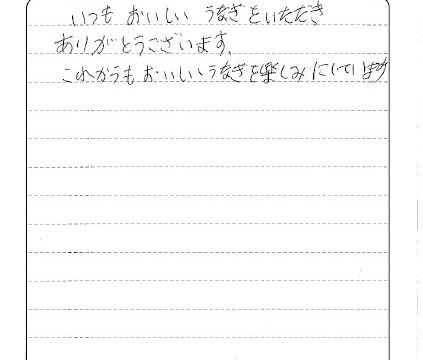 いつも おいしい うなぎをいただき
ありがとうございます、
これからも おいしいうなぎを楽しみにしています